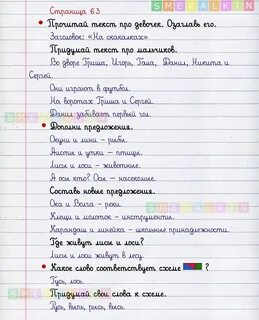 SMEKALKIN
Страница 63
Прочитай текст про девочек. Озаглавь его.
Заголовок: «На скакалках»
Придумай текст про мальчиков.
Во дворе Гриша, Игорь, Гоша, Данил, Никита и
Сергей.
Они играют в футбол.
На воротах Гриша и Сергей.
Данил забивает первый гол.
Дополни предложения.
Окуни и лини – рыбы.
Аисты и утки – птицы.
Лисы и лоси – животные.
А осы кто? Осы – насекомые.
Составь новые предложения.
Ока и Волга – реки.
Клещи и молоток – инструменты.
Карандаш и линейка – школьные принадлежности.
Где живут лисы и лоси?
Лисы и лоси живут в лесу.
Какое слово соответствует схеме ?
Гусь, лось.
Придумай свои слова к схеме.
Гусь, выпь, рысь, высь.